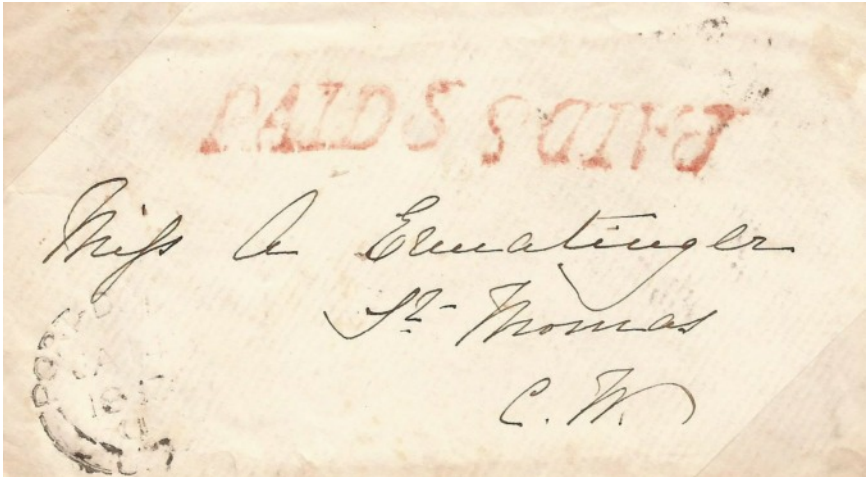 PAID 5 PAID 5
Miss A Ermatinger
St Thomas
C. W.